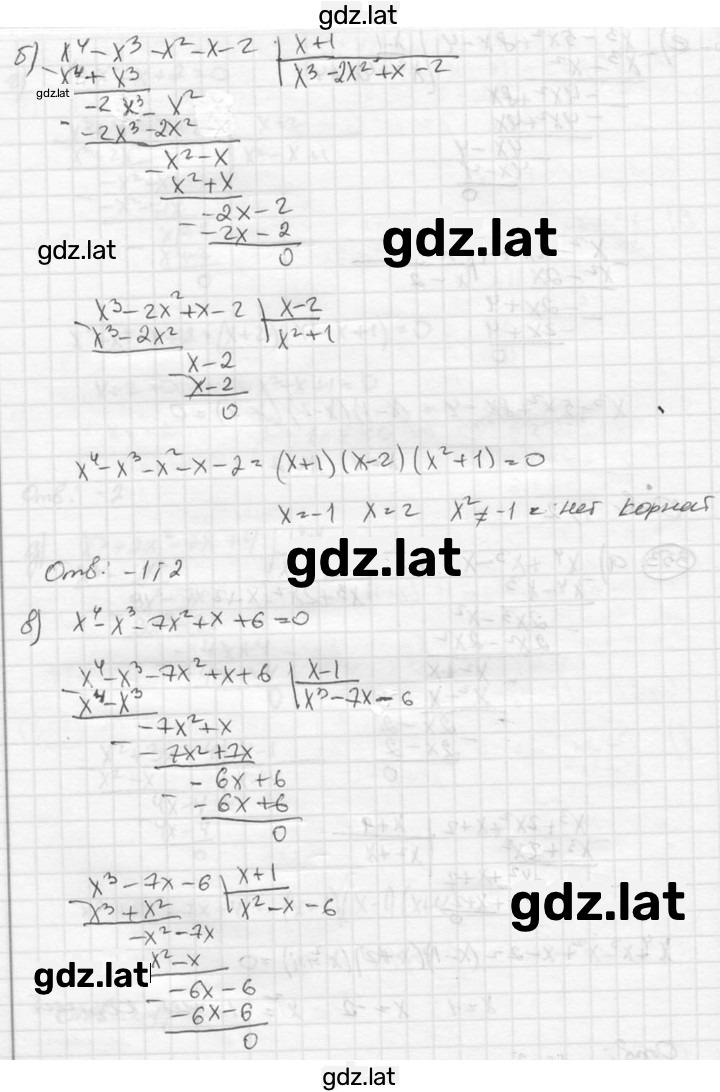 gdz.lat
б) x⁴ - x³ - x² - x - 2 | x+1
x⁴ + x³ | x³ - 2x² + x - 2
gdz.lat
-2x³ - x²
-2x³ - 2x²
x² - x
x² + x
-2x - 2
-2x - 2
0
gdz.lat
gdz.lat
x³ - 2x² + x - 2 | x-2
x³ - 2x² | x² + 1
x - 2
x - 2
0
x⁴ - x³ - x² - x - 2 = (x+1)(x-2)(x²+1) = 0
x = -1 x = 2 x² ≠ -1 = нет корней
gdz.lat
Отв: -1; 2
в) x⁴ - x³ - 7x² + x + 6 = 0
x⁴ - x³ - 7x² + x + 6 | x-1
x⁴ - x³ | x³ - 7x - 6
-7x² + x
-7x² + 7x
-6x + 6
-6x + 6
0
x³ - 7x - 6 | x+1
x³ + x² | x² - x - 6
gdz.lat
-x² - 7x
x² - x
gdz.lat
-6x - 6
-6x - 6
0
gdz.lat